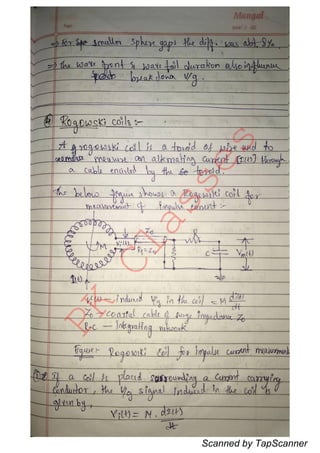 Mangal
⇒ For smaller sphere gaps the diff. was abt. 8%.
⇒ The wave front & wave tail duration also influence
break down V/g.
Rogowski coils :-
A rogowski coil is a toroid of wire used to
measure an alternating current [I(t)] through
a cable encircled by the toroid.
The below figure shows a Rogowski coil for
measurement of impulse current :-
M
Z0
R
C
Vm(t)
I(t)
Vi(t) — induced V/g in the coil = M dI(t)/dt
Z0 — coaxial cable of surge impedance Z0
R-C — Integrating network
Figure:- Rogowski coil for impulse current measurement
If a coil is placed surrounding a current carrying
conductor, the V/g signal induced in the coil is
given by,
Vi(t) = M. dI(t)
dt
RK Classes
Scanned by TapScanner